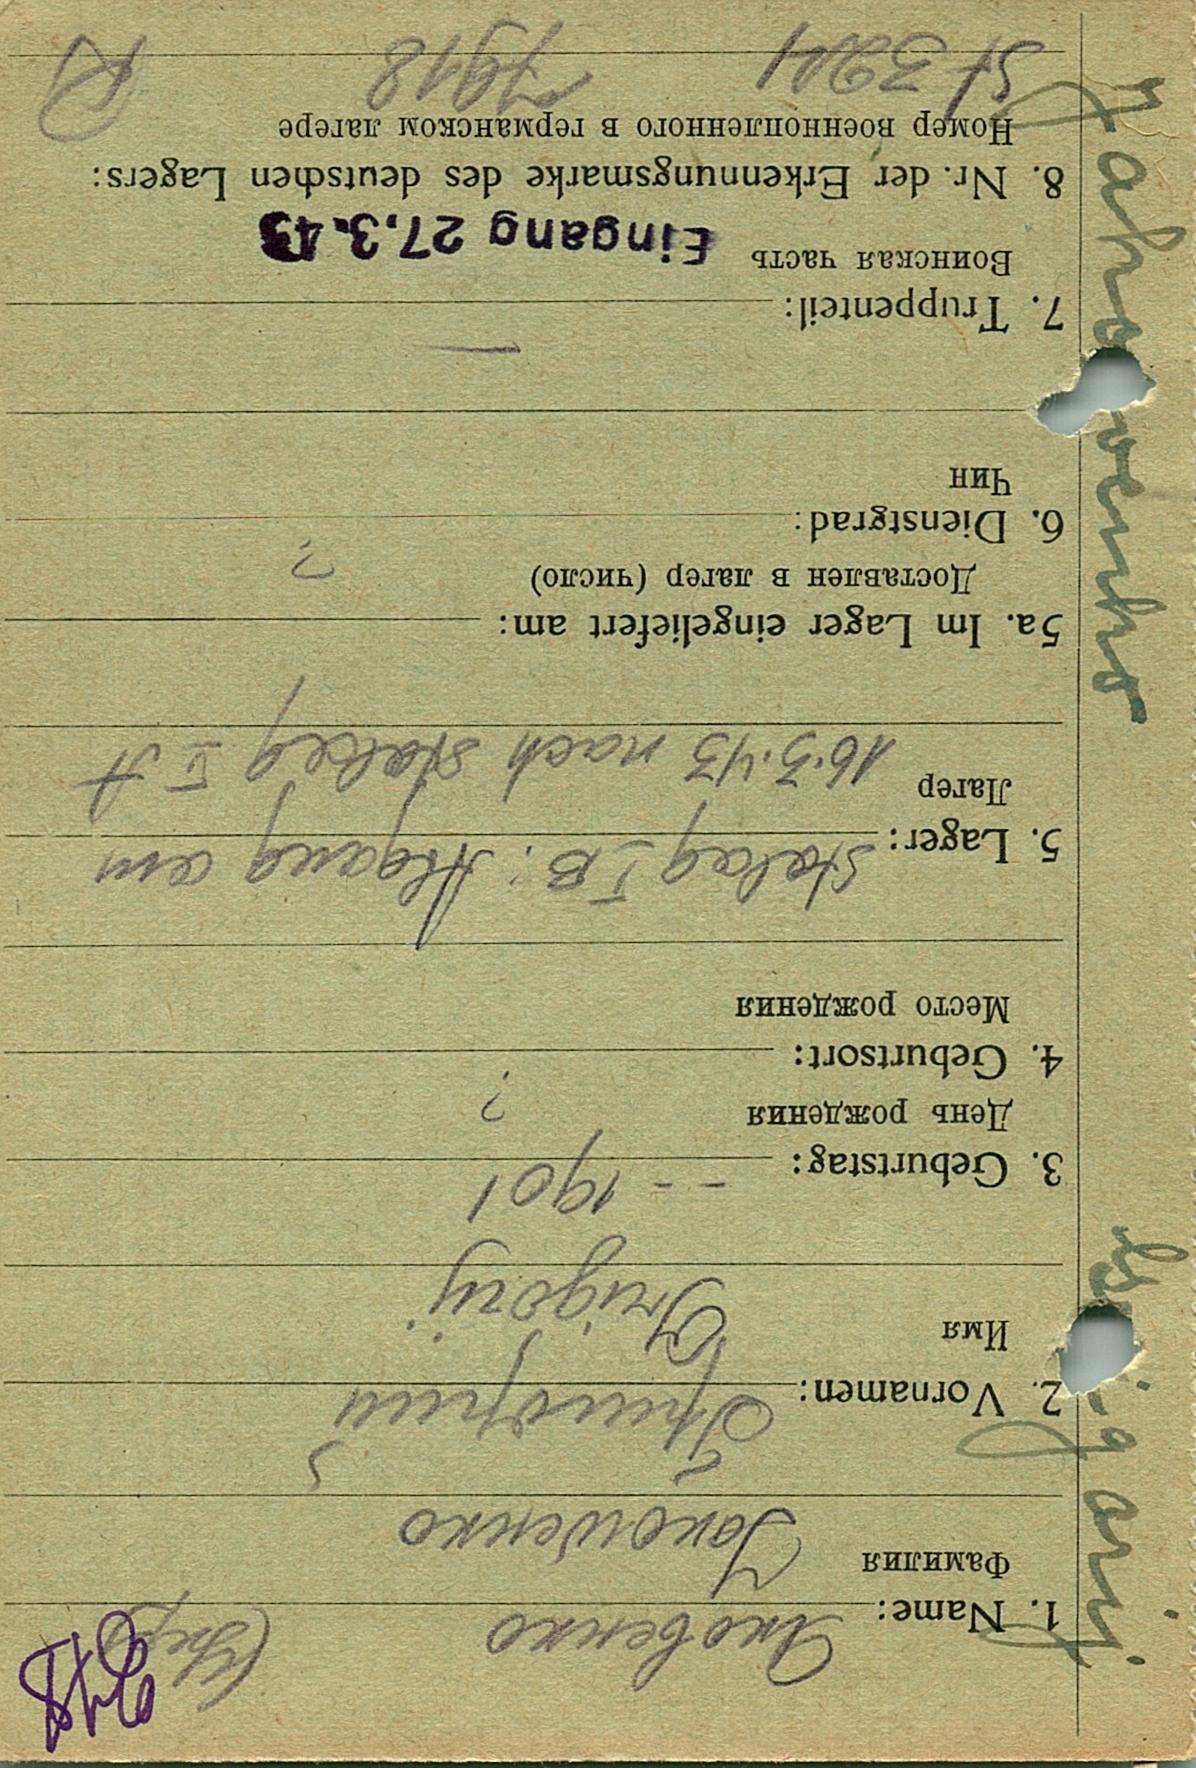 1. Name: Яковенко
Фамилия
Jakowenko
2. Vornamen: Григорий
Имя
Grigorij
3. Geburtstag: - - 1901
День рождения
?
4. Geburtsort:
Место рождения
5. Lager: Stalag I B: Abgang am
Лагер
16.3.43 nach Stalag V A
5a. Im Lager eingeliefert am:
Доставлен в лагер (число)
?
6. Dienstgrad:
Чин
—
7. Truppenteil:
Воинская часть
Eingang 27.3.43
8. Nr. der Erkennungsmarke des deutschen Lagers:
Номер военнопленного в германском лагере
7918